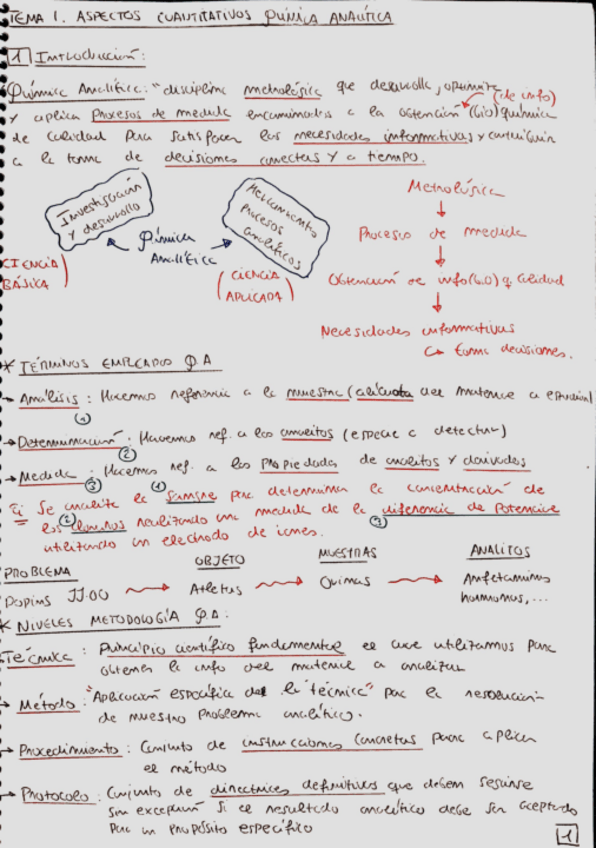 TEMA 1. ASPECTOS CUANTITATIVOS QUÍMICA ANALÍTICA
1 Introducción:
Química Analítica: "disciplina metrológica que desarrolla, optimiza
y aplica Procesos de medida encaminados a la obtención (de info) (bio)química
de calidad para satisfacer las necesidades informativas y contribuir
a la toma de decisiones correctas y a tiempo.
Investigación y desarrollo
Química Analítica
Herramientas procesos analíticos
CIENCIA BÁSICA
(CIENCIA APLICADA)
Metrológica
Procesos de medida
Obtención de info(bio)q calidad
Necesidades informativas
toma decisiones.
* TÉRMINOS EMPLEADOS Q.A
→ Análisis: Hacemos referencia a la muestra (alícuota del material a estudiar)
(1)
→ Determinación: Hacemos ref. a los analitos (especie a detectar)
(2)
→ Medida: Hacemos ref. a las propiedades de analitos y derivados
(3)
Ej Se analiza la (1) sangre para determinar la concentración de
los (2) cloruros realizando una medida de la diferencia de potencial (3)
utilizando un electrodo de iones.
PROBLEMA OBJETO MUESTRAS ANALITOS
Doping JJ.OO → Atletas → Orinas → Anfetaminas
hormonas,...
* NIVELES METODOLOGÍA Q.A:
Técnica: Principio científico fundamental el que utilizamos para
obtener la info del material a analizar
→ Método: "Aplicación específica de la técnica" para la resolución
de nuestro problema analítico.
→ Procedimiento: Conjunto de instrucciones concretas para aplicar
el método
→ Protocolo: Conjunto de directrices definitivas que deben seguirse
sin excepción si el resultado analítico debe ser aceptado
para un propósito específico
1